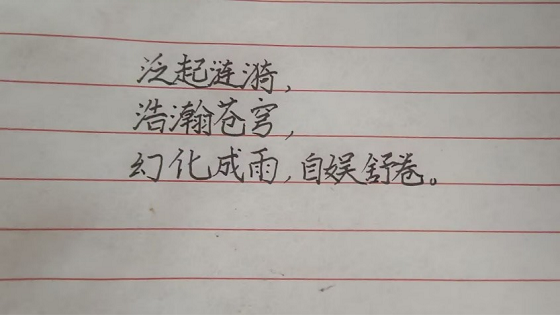 泛起涟漪，
浩瀚苍穹，
幻化成雨，自娱舒卷。